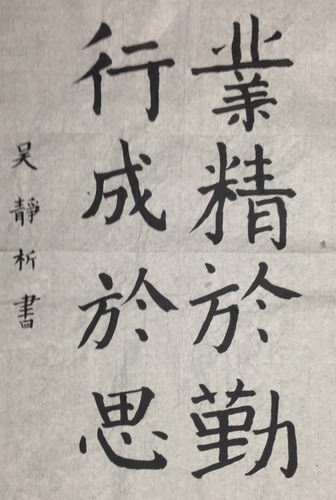 業精於勤
行成於思
吴靜析書